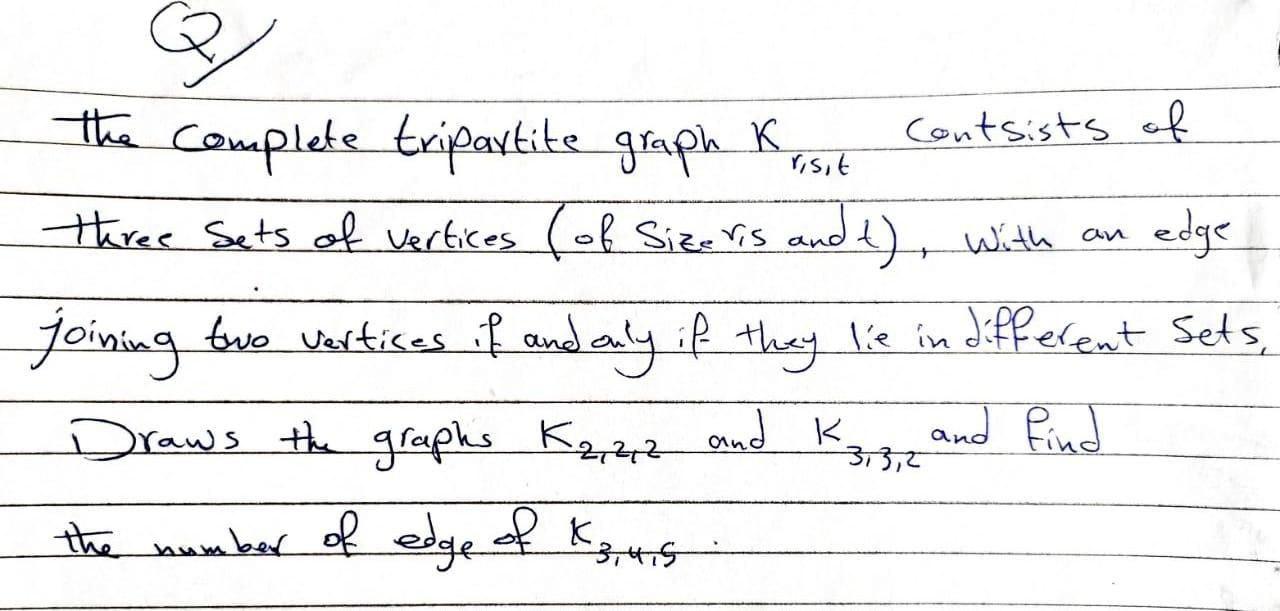 Q/
the Complete tripartite graph K r,s,t Contsists of
three Sets of vertices (of Size r,s and t), With an edge
joining two vertices if and only if they lie in different Sets,
Draws the graphs K2,2,2 and K3,3,2 and find
the number of edge of K3,4,5.